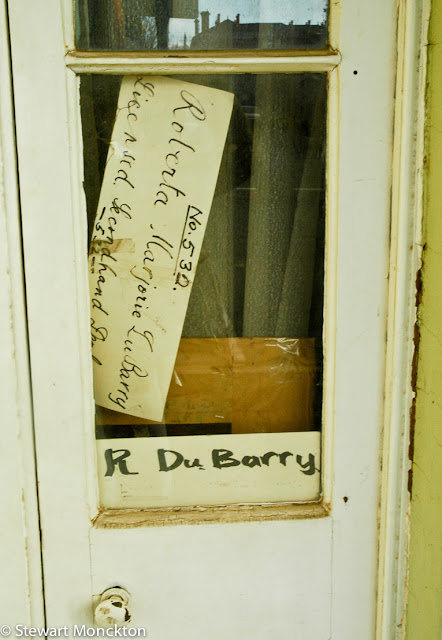 No. 532.
Roberta Marjorie DuBarry
Licensed Secondhand
R Du Barry
© Stewart Monckton